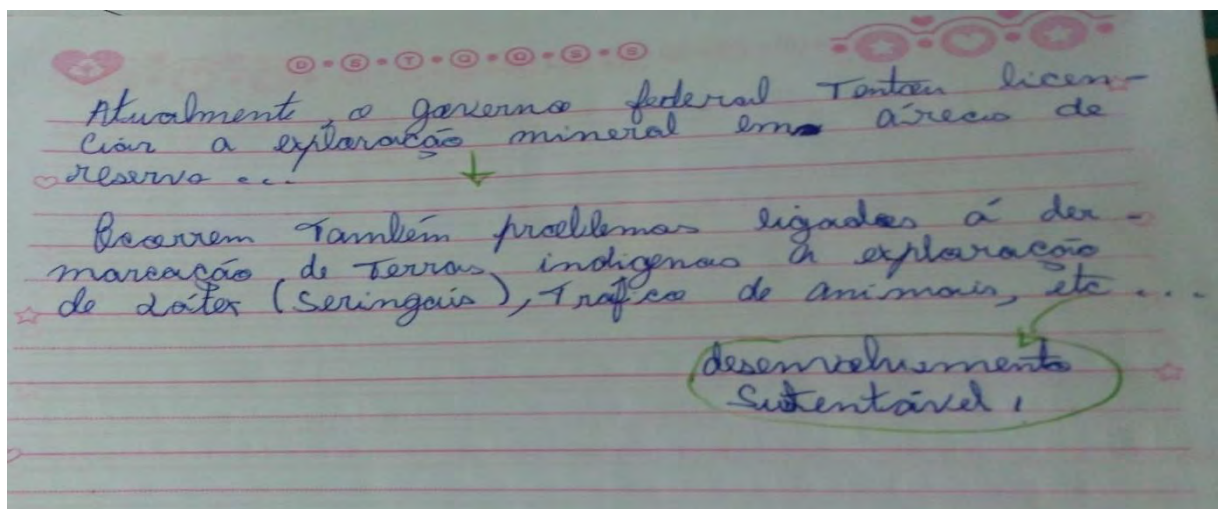 D S T Q Q S S
Atualmente, o governo federal Tentou licen-
ciar a exploração mineral em áreas de
reserva ...
Ocorrem Também problemas ligados á der-
marcação de Terras, indigenas a exploração
de Látex (Seringais), Trafico de animais, etc ...
desenvolvimento
Sutentável,